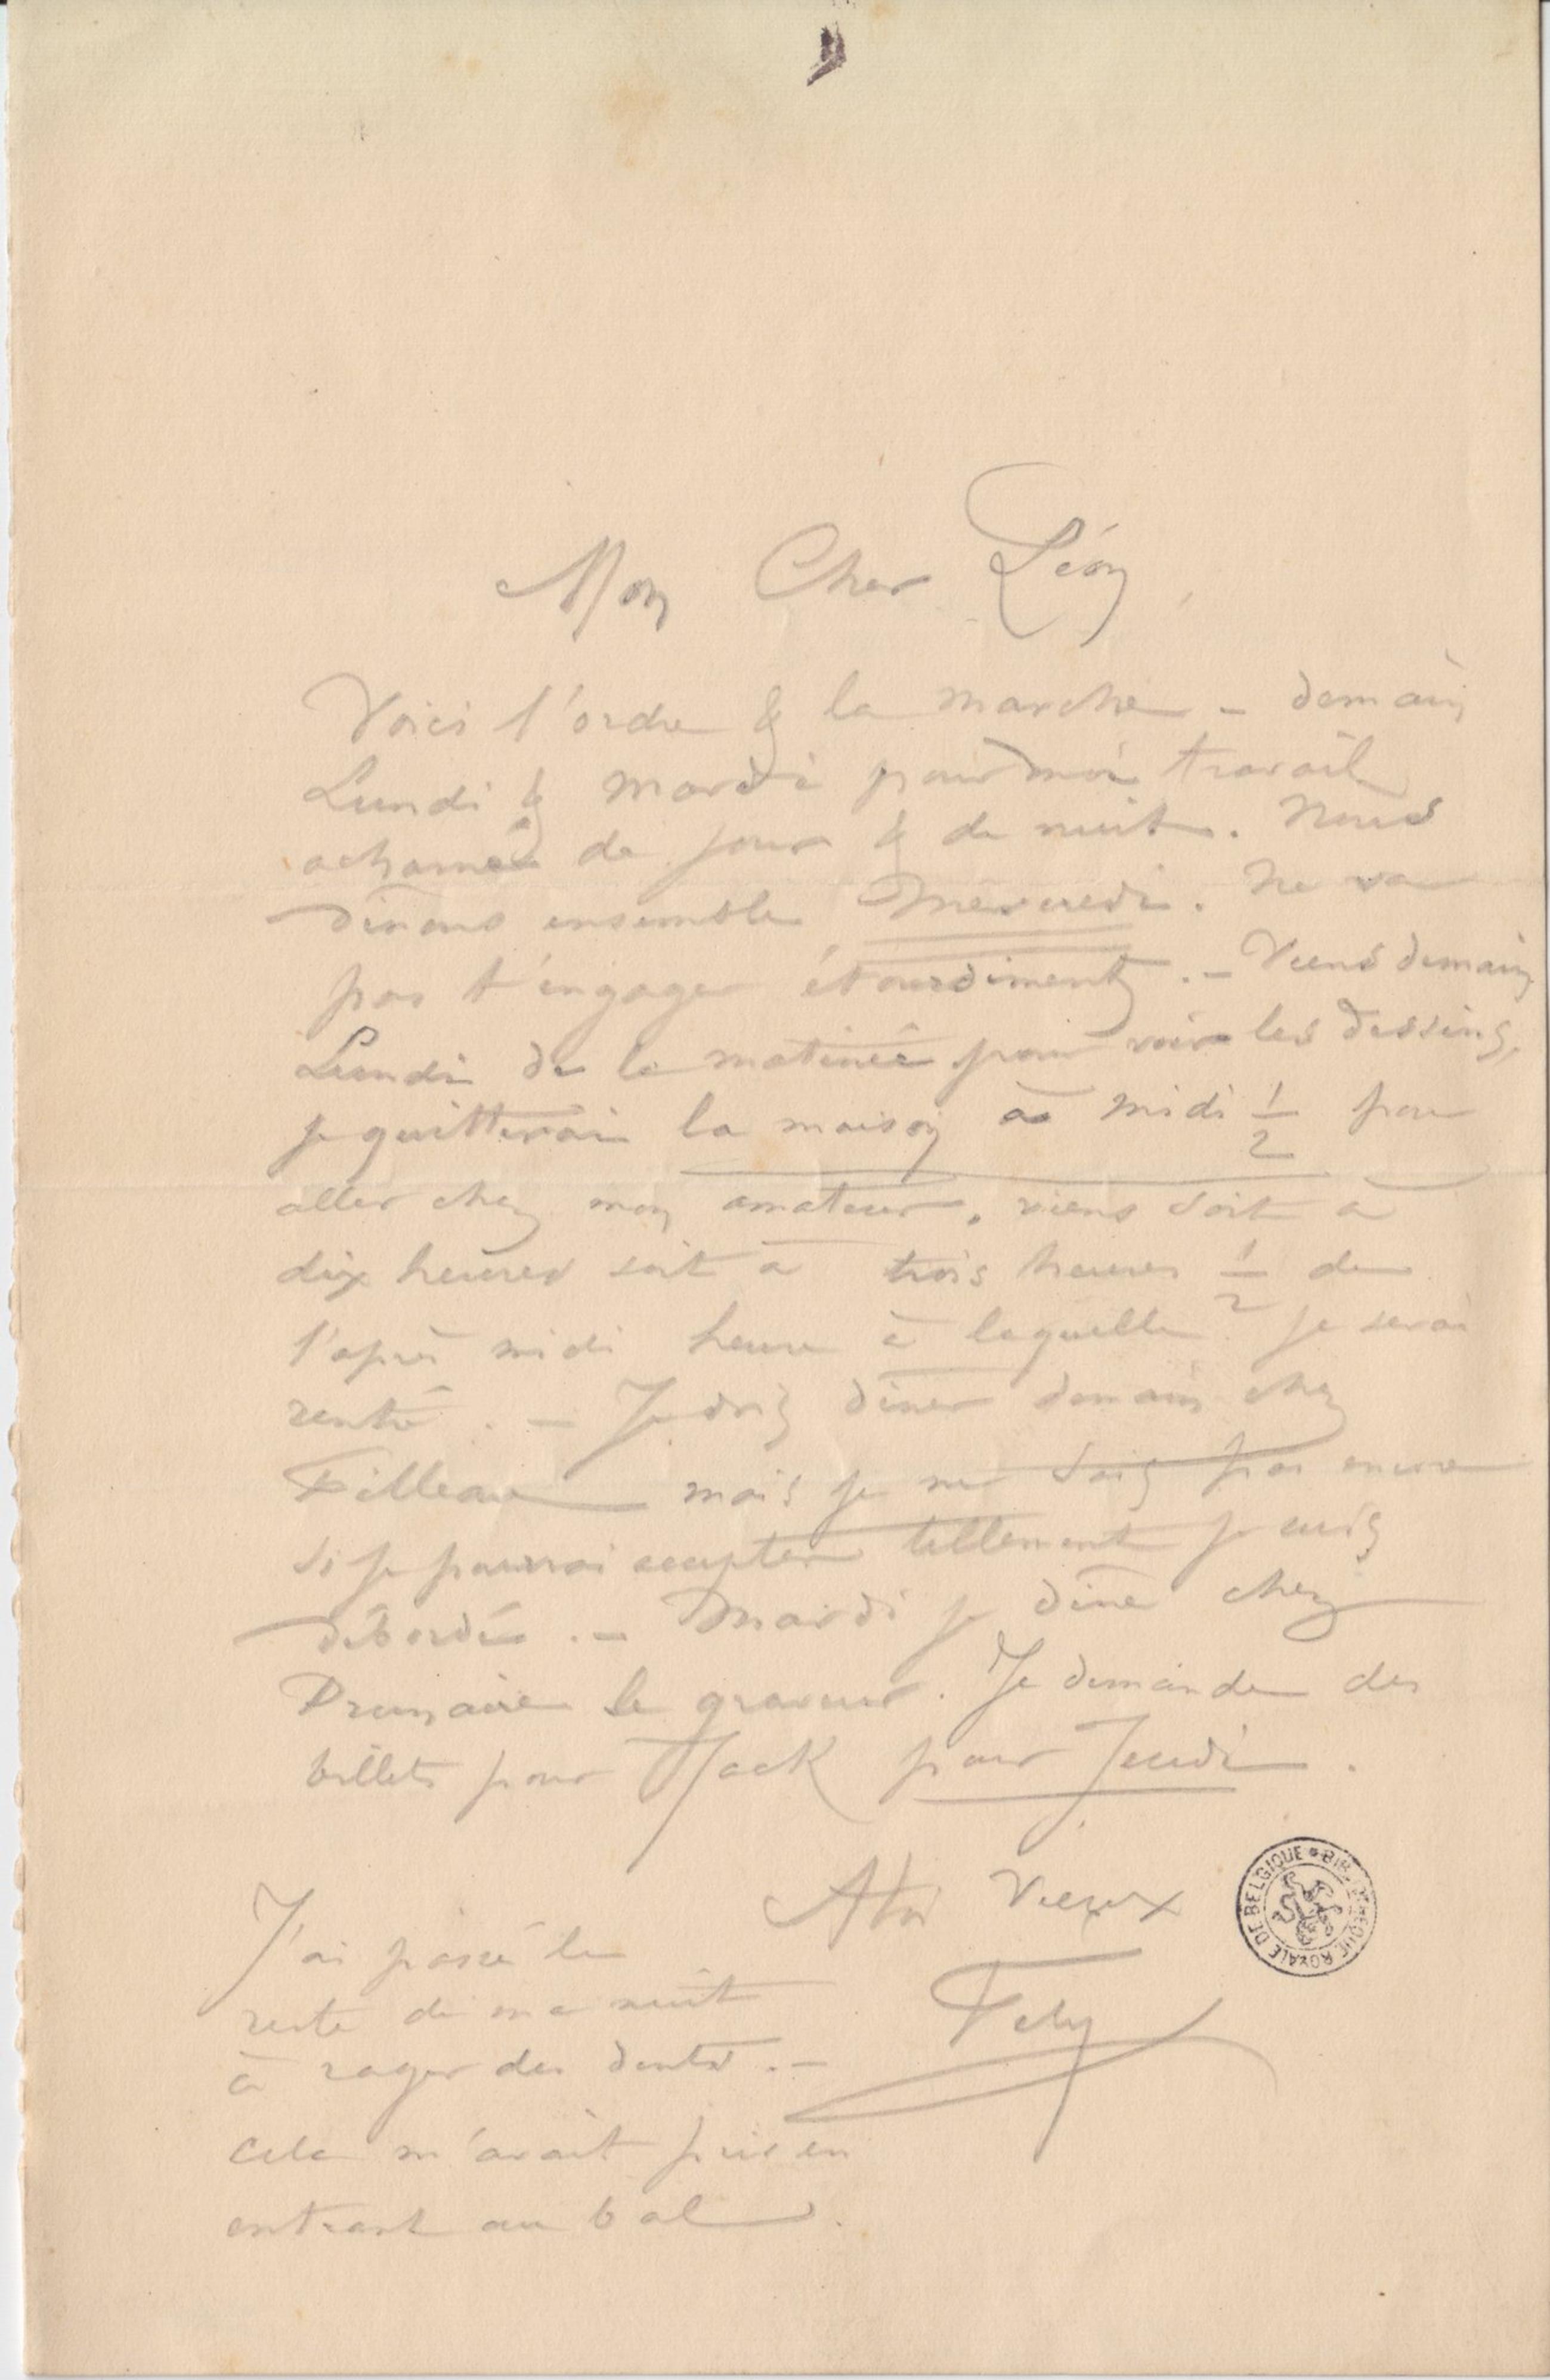 Mon Cher Léon,
Voici l'ordre & la marche – demain
Lundi & mardi pour moi travail
acharné de jour & de nuit. Nous
dinons ensemble Mercredi. Ne va
pas t'engager étourdiment. – Viens demain
Lundi de la matinée pour voir les dessins,
je quitterai la maison à midi 1/2 pour
aller chez mon amateur. viens soit à
dix heures soit à trois heures 1/2 de
l'après midi heure à laquelle je serai
rentré. – Je dois diner demain chez
Filleau mais je ne sais pas encore
si je pourrai accepter tellement je suis
débordé. – Mardi je dine chez
Prunaire le graveur. Je demande des
billets pour Jack pour Jeudi.
A toi Vieux
Fely
J'ai passé le
reste de ma nuit
à rager des dents. –
cela m'avait pris en
entrant au bal.
BIBLIOTHEQUE ROYALE DE BELGIQUE